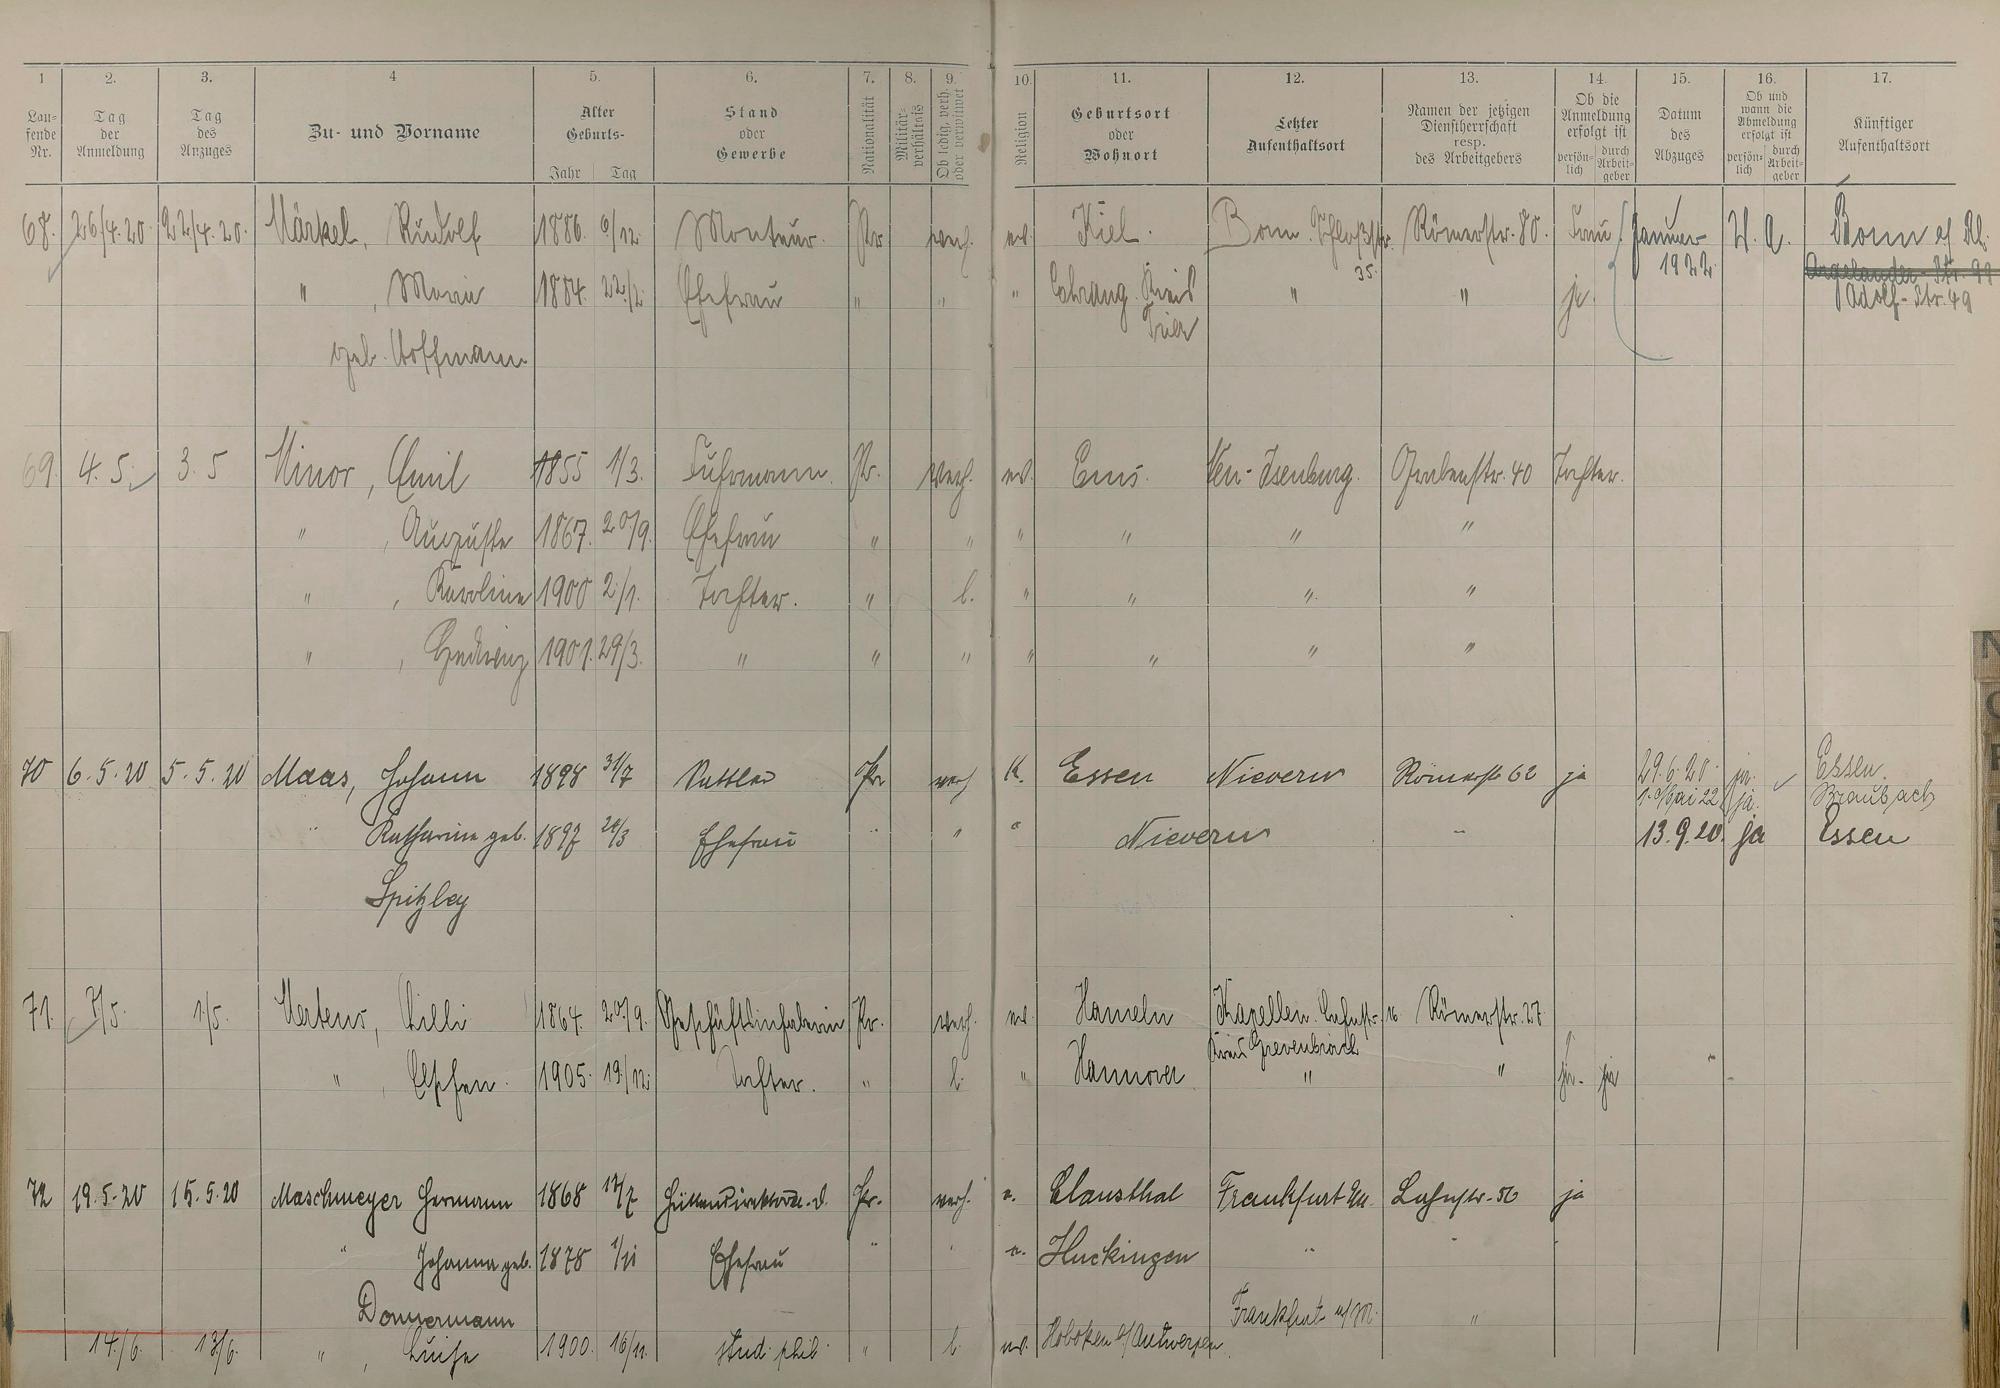 1 2. 3. 4 5. 6. 7. 8. 9. 10. 11. 12. 13. 14. 15. 16. 17.
Lau-
fende
Nr.
Tag
der
Anmeldung
Tag
des
Anzuges
Zu- und Vorname
Alter
Geburts-
Jahr Tag
Stand
oder
Gewerbe
Nationalität
Militär-
verhältnis
Ob ledig, verh.
oder verwitwet
Religion
Geburtsort
oder
Wohnort
Letzter
Aufenthaltsort
Namen der jetzigen
Dienstherrschaft
resp.
des Arbeitgebers
Ob die
Anmeldung
erfolgt ist
persön-
lich
durch
Arbeit-
geber
Datum
des
Abzuges
Ob und
wann die
Abmeldung
erfolgt ist
persön-
lich
durch
Arbeit-
geber
Künftiger
Aufenthaltsort
68. 26/4.20. 22/4.20. Märkel, Rudolf 1886. 6/12. Monteur. Pr. verh. ev. Kiel. Bonn. Schloßstr. Römerstr. 80. Frau Januar W. A. Bonn a/ Rh.
35. 1922. Argelander-Str. 99
" , Maria 1884. 22./2. Ehefrau " " " Ehrang Kreis " " ja. Adolf-Str. 49
Trier
geb. Hoffmann
69. 4.5. 3.5 Minor, Emil 1855 1/3. Fuhrmann. Pr. verh. ev. Ems. Neu-Isenburg. Grabenstr. 40 Tochter.
" , Auguste 1867. 20/9. Ehefrau " " " " " "
" , Karoline 1900 2/1. Tochter. " l. " " " "
" , Hedwig 1901. 29/3. " " " " " " "
70 6.5.20 5.5.20 Maas, Johann 1898 31/7 Sattler Pr. verh K. Essen Nievern Römerstr 62 ja 29.6.20. ja. Essen.
1. Mai 22. ja. Braubach
" Katharine geb. 1897 24/3 Ehefrau " " " Nievern " 13.9.20. ja Essen
Spitzley
71. 7/5. 1/5. Mertens, Cilli 1864. 20/9. Geschäftsinhaberin Pr. verh. ev. Hameln Kapellen. Bahnstr. 16 Römerstr. 27
Kreis Grevenbroich
" , 1905. 19/12. Tochter. " l. " Hannover " " ja. ja
72 19.5.20 15.5.20 Maschmeyer Hermann 1868 14/7 Hüttendirektor a.D. Pr. verh. e. Clausthal Frankfurt M. Lahnstr. 56 ja
" Johanna geb. 1878 1/11 Ehefrau " " e. Huckingen " "
Donnermann
14./6. 13/6. " , Luise 1900. 16/11. stud. phil. " l. ev. Hoboken b/ Antwerpen. Frankfurt a/M. "